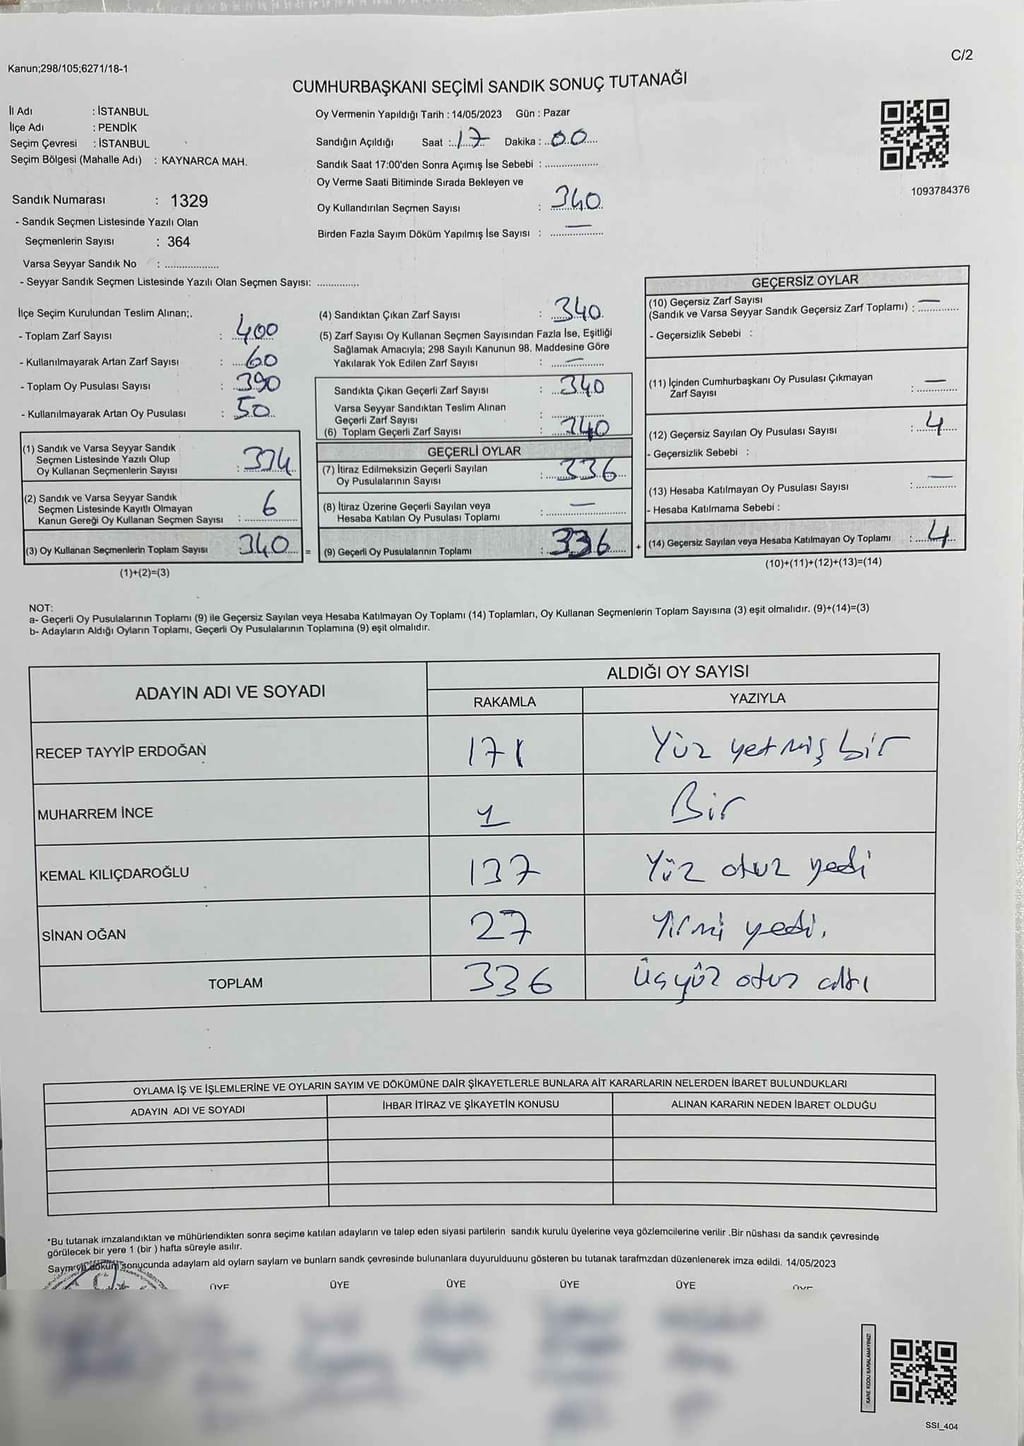 C/2
Kanun;298/105;6271/18-1
CUMHURBAŞKANI SEÇİMİ SANDIK SONUÇ TUTANAĞI
İl Adı : İSTANBUL
İlçe Adı : PENDİK
Seçim Çevresi : İSTANBUL
Seçim Bölgesi (Mahalle Adı) : KAYNARCA MAH.
Sandık Numarası : 1329
- Sandık Seçmen Listesinde Yazılı Olan
Seçmenlerin Sayısı : 364
Varsa Seyyar Sandık No : ..................
- Seyyar Sandık Seçmen Listesinde Yazılı Olan Seçmen Sayısı: ..............
Oy Vermenin Yapıldığı Tarih : 14/05/2023 Gün : Pazar
Sandığın Açıldığı Saat : 17 Dakika : 00
Sandık Saat 17:00'den Sonra Açımış İse Sebebi : ..................
Oy Verme Saati Bitiminde Sırada Bekleyen ve
Oy Kullandırılan Seçmen Sayısı : 340
Birden Fazla Sayım Döküm Yapılmış İse Sayısı : —
1093784376
İlçe Seçim Kurulundan Teslim Alınan;.
- Toplam Zarf Sayısı : 400
- Kullanılmayarak Artan Zarf Sayısı : 60
- Toplam Oy Pusulası Sayısı : 390
- Kullanılmayarak Artan Oy Pusulası : 50
(1) Sandık ve Varsa Seyyar Sandık
Seçmen Listesinde Yazılı Olup
Oy Kullanan Seçmenlerin Sayısı : 334
(2) Sandık ve Varsa Seyyar Sandık
Seçmen Listesinde Kayıtlı Olmayan
Kanun Gereği Oy Kullanan Seçmen Sayısı : 6
(3) Oy Kullanan Seçmenlerin Toplam Sayısı 340 =
(1)+(2)=(3)
(4) Sandıktan Çıkan Zarf Sayısı : 340
(5) Zarf Sayısı Oy Kullanan Seçmen Sayısından Fazla İse, Eşitliği
Sağlamak Amacıyla; 298 Sayılı Kanunun 98. Maddesine Göre
Yakılarak Yok Edilen Zarf Sayısı : —
Sandıkta Çıkan Geçerli Zarf Sayısı : 340
Varsa Seyyar Sandıktan Teslim Alınan
Geçerli Zarf Sayısı : ..................
(6) Toplam Geçerli Zarf Sayısı : 340
GEÇERLİ OYLAR
(7) İtiraz Edilmeksizin Geçerli Sayılan
Oy Pusulalarının Sayısı : 336
(8) İtiraz Üzerine Geçerli Sayılan veya
Hesaba Katılan Oy Pusulası Toplamı : —
(9) Geçerli Oy Pusulalarının Toplamı : 336 +
GEÇERSİZ OYLAR
(10) Geçersiz Zarf Sayısı
(Sandık ve Varsa Seyyar Sandık Geçersiz Zarf Toplamı) : —
- Geçersizlik Sebebi :
(11) İçinden Cumhurbaşkanı Oy Pusulası Çıkmayan
Zarf Sayısı : —
(12) Geçersiz Sayılan Oy Pusulası Sayısı : 4
- Geçersizlik Sebebi :
(13) Hesaba Katılmayan Oy Pusulası Sayısı : —
- Hesaba Katılmama Sebebi :
(14) Geçersiz Sayılan veya Hesaba Katılmayan Oy Toplamı : 4
(10)+(11)+(12)+(13)=(14)
NOT:
a- Geçerli Oy Pusulalarının Toplamı (9) ile Geçersiz Sayılan veya Hesaba Katılmayan Oy Toplamı (14) Toplamları, Oy Kullanan Seçmenlerin Toplam Sayısına (3) eşit olmalıdır. (9)+(14)=(3)
b- Adayların Aldığı Oyların Toplamı, Geçerli Oy Pusulalarının Toplamına (9) eşit olmalıdır.
ADAYIN ADI VE SOYADI ALDIĞI OY SAYISI
RAKAMLA YAZIYLA
RECEP TAYYİP ERDOĞAN 171 Yüz yetmiş bir
MUHARREM İNCE 1 Bir
KEMAL KILIÇDAROĞLU 137 Yüz otuz yedi
SİNAN OĞAN 27 Yirmi yedi.
TOPLAM 336 Üçyüz otuz altı
OYLAMA İŞ VE İŞLEMLERİNE VE OYLARIN SAYIM VE DÖKÜMÜNE DAİR ŞİKAYETLERLE BUNLARA AİT KARARLARIN NELERDEN İBARET BULUNDUKLARI
ADAYIN ADI VE SOYADI İHBAR İTİRAZ VE ŞİKAYETİN KONUSU ALINAN KARARIN NEDEN İBARET OLDUĞU
*Bu tutanak imzalandıktan ve mühürlendikten sonra seçime katılan adayların ve talep eden siyasi partilerin sandık kurulu üyelerine veya gözlemcilerine verilir .Bir nüshası da sandık çevresinde
görülecek bir yere 1 (bir ) hafta süreyle asılır.
sonucunda adaylarn ald oylarn saylarn ve bunlarn sandk çevresinde bulunanlara duyurulduunu gösteren bu tutanak tarafmzdan düzenlenerek imza edildi. 14/05/2023
ÜYE ÜYE ÜYE ÜYE ÜYE
SSI_404